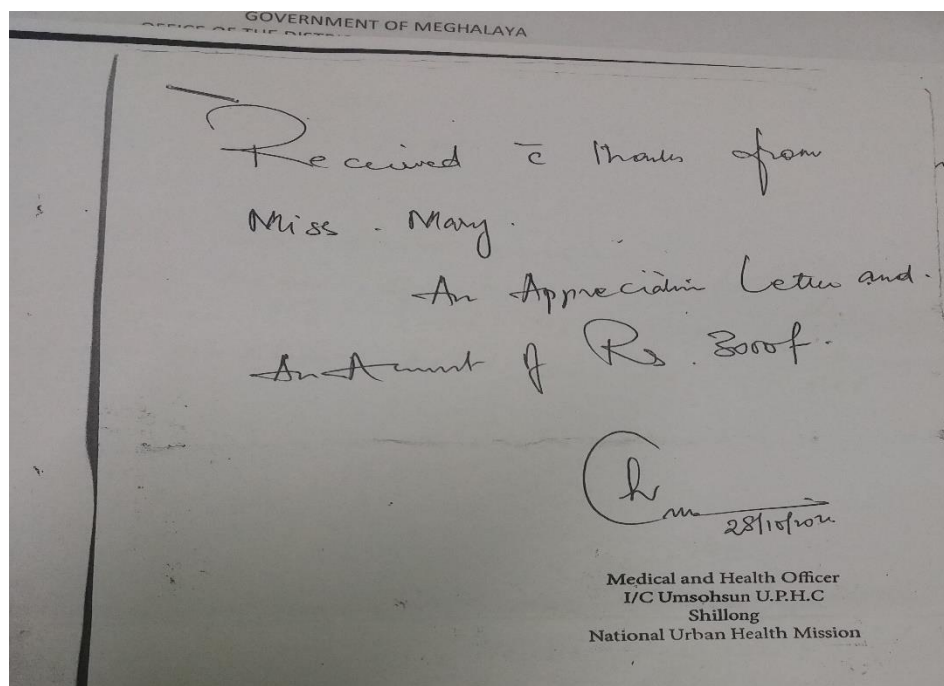 GOVERNMENT OF MEGHALAYA
OFFICE OF THE
Received c̄ thanks from
Miss. Mary.
An Appreciation Letter and
An Amount of Rs. 3000/-.
28/10/202
Medical and Health Officer
I/C Umsohsun U.P.H.C
Shillong
National Urban Health Mission